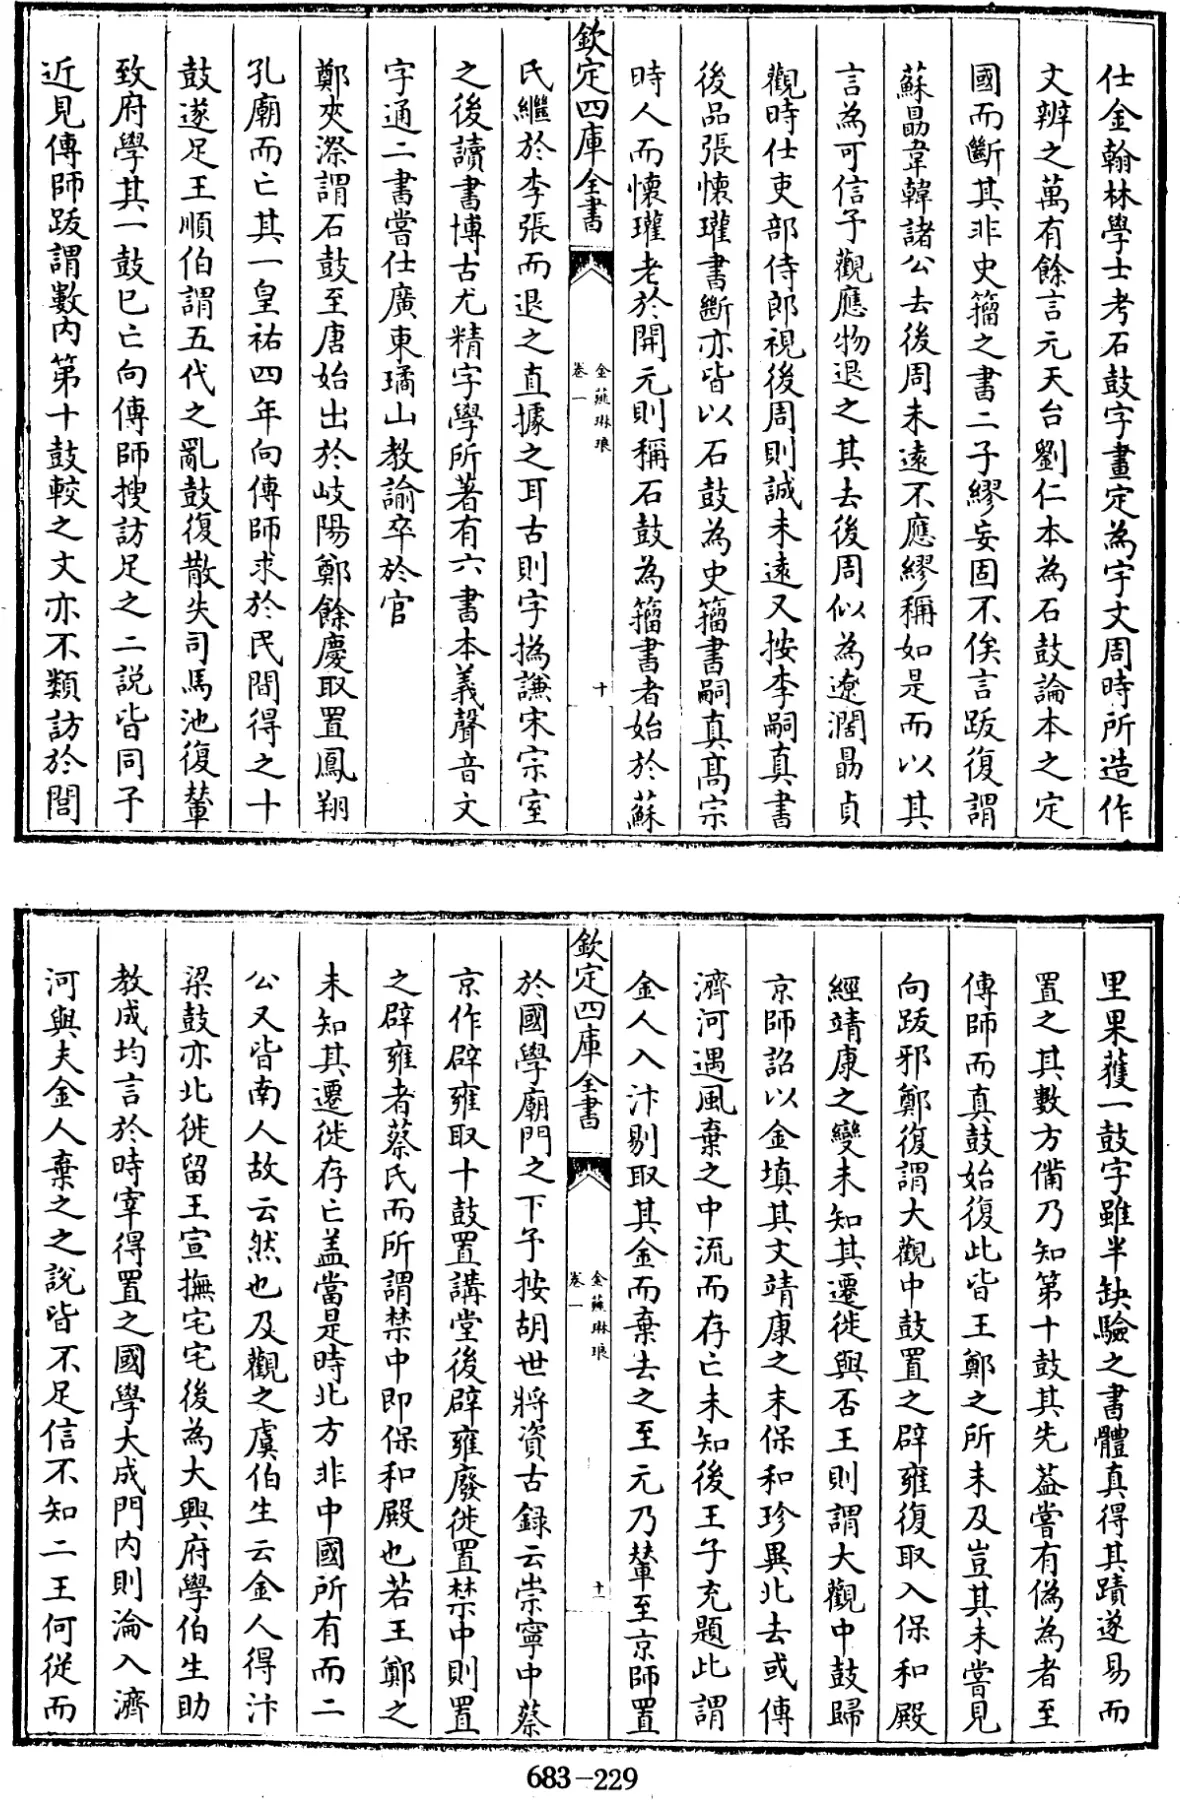 仕金翰林學士考石鼓字畫定為宇文周時所造作
文辨之萬有餘言元天台劉仁本為石鼓論本之定
國而斷其非史籀之書二子繆妄固不俟言跋復謂
蘇勗韋韓諸公去後周未遠不應繆稱如是而以其
言為可信予觀應物退之其去後周似為遼濶勗貞
觀時仕吏部侍郎視後周則誠未遠又按李嗣真書
後品張懷瓘書斷亦皆以石鼓為史籀書嗣真髙宗
時人而懷瓘老於開元則稱石鼓為籀書者始於蘇
欽定四庫全書
金薤琳琅
卷一
十
氏繼於李張而退之直據之耳古則字撝謙宋宗室
之後讀書博古尤精字學所著有六書本義聲音文
字通二書嘗仕廣東璚山教諭卒於官
鄭夾漈謂石鼓至唐始出於岐陽鄭餘慶取置鳳翔
孔廟而亡其一皇祐四年向傳師求於民間得之十
鼓遂足王順伯謂五代之亂鼓復散失司馬池復輦
致府學其一鼓已亡向傳師搜訪足之二説皆同予
近見傳師跋謂數内第十鼓較之文亦不類訪於閭
里果獲一鼓字雖半缺驗之書體真得其蹟遂易而
置之其數方備乃知第十鼓其先葢嘗有偽為者至
傳師而真鼓始復此皆王鄭之所未及豈其未嘗見
向跋邪鄭復謂大觀中鼓置之辟雍復取入保和殿
經靖康之變未知其遷徙與否王則謂大觀中鼓歸
京師詔以金填其文靖康之末保和珍異北去或傳
濟河遇風棄之中流而存亡未知後王子充題此謂
金人入汴剔取其金而棄去之至元乃輦至京師置
欽定四庫全書
金薤琳琅
卷一
十一
於國學廟門之下予按胡世將資古録云崇寧中蔡
京作辟雍取十鼓置講堂後辟雍廢徙置禁中則置
之辟雍者蔡氏而所謂禁中即保和殿也若王鄭之
未知其遷徙存亡盖當是時北方非中國所有而二
公又皆南人故云然也及觀之虞伯生云金人得汴
梁鼓亦北徙留王宣撫宅宅後為大興府學伯生助
教成均言於時宰得置之國學大成門内則淪入濟
河與夫金人棄之之說皆不足信不知二王何從而
683-229